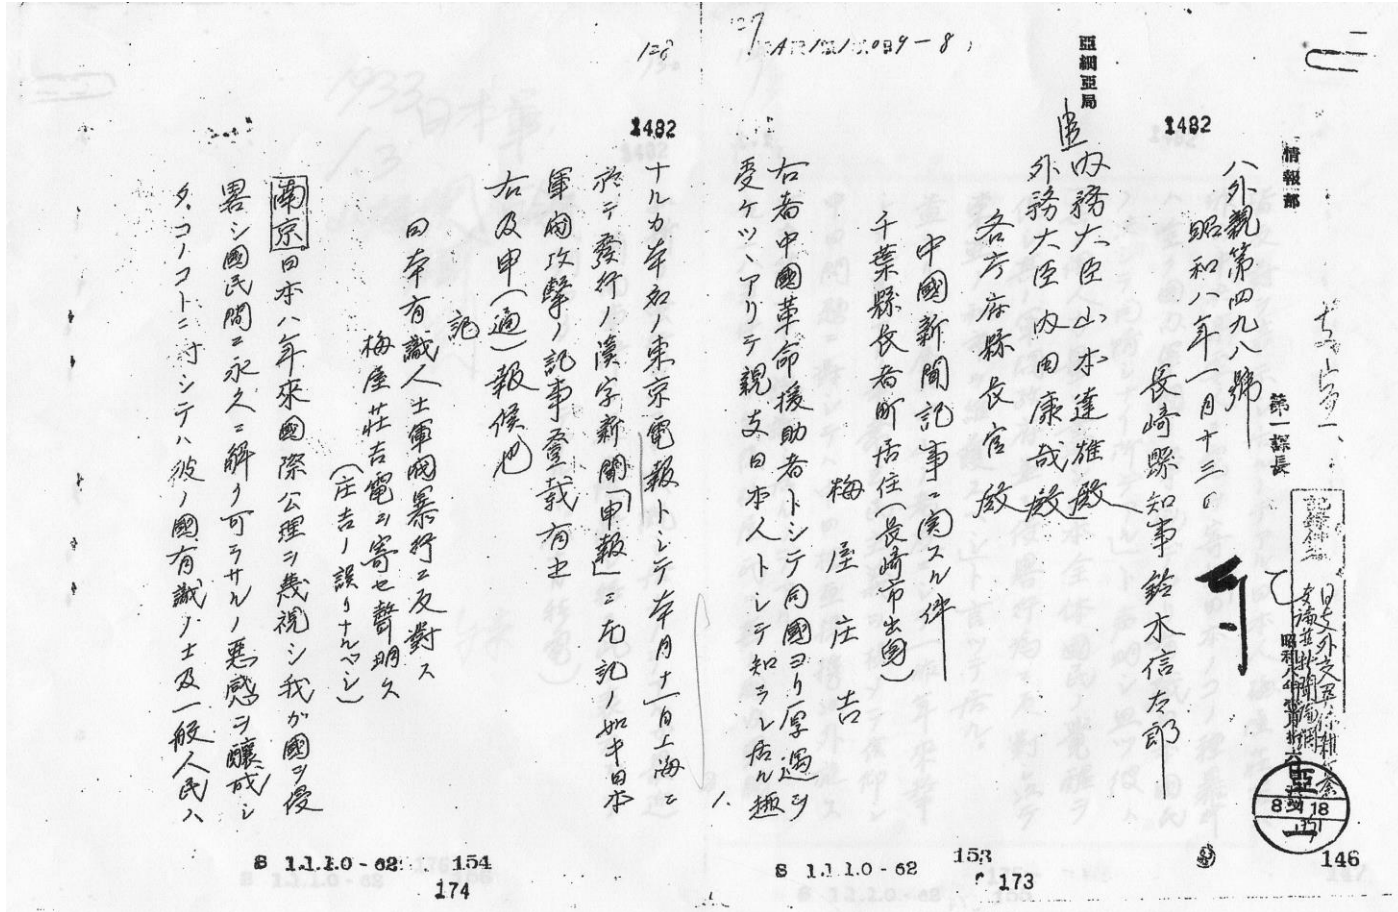 亞細亞局
1482
情報部
第一課長
八外親第四九八號
昭和八年一月十三日
長崎縣知事鈴木信太郎
内務大臣山本達雄殿
外務大臣内田康哉殿
各庁府縣長官殿
中國新聞記事ニ関スル件
千葉縣長者町居住(長崎市出身)
梅屋庄吉
右者中國革命援助者トシテ同國ヨリ厚遇ヲ
受ケツヽアリテ親支日本人トシテ知ラレ居ル趣
146
8 18
S 1.1.1.0-62
153
173
127
128
1482
ナルカ本名ノ東京電報トシテ本月十一日上海ニ
於テ發行ノ漢字新聞「申報」ニ左記ノ如キ日本
軍閥攻撃ノ記事登載有之
右及申(通)報候也
記
日本有識人士軍閥暴行ニ反對ス
梅屋莊吉電ヲ寄セ聲明ス
(庄吉ノ誤リナルベシ)
南京 日本ハ年來國際公理ヲ蔑視シ我ガ國ヲ侵
畧シ國民間ニ永久ニ解ク可ラサルノ悪感ヲ釀成シ
タ、コノコトニ对シテハ彼ノ國有識ノ士及一般人民ハ
S 1.1.1.0-62
154
174